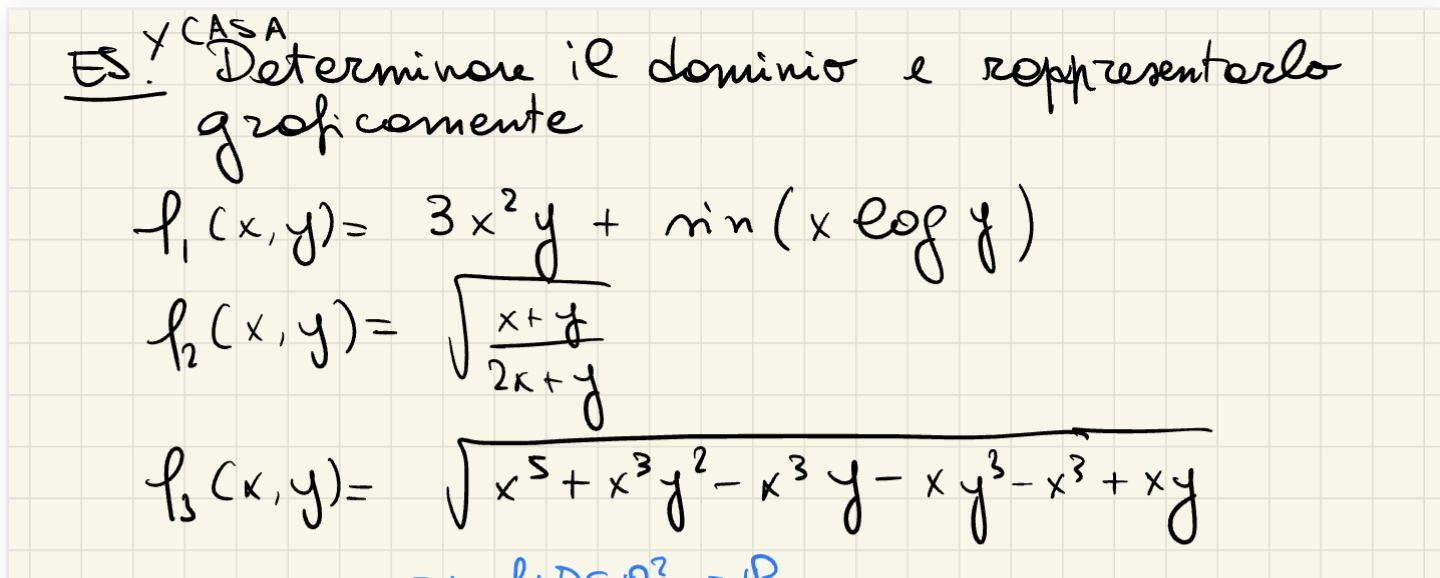 ES. x CASA Determinare il dominio e rappresentarlo
graficamente
f₁(x,y)= 3x²y + sin(x log y)
f₂(x,y)= √((x+y)/(2x+y))
f₃(x,y)= √(x⁵+x³y²-x³y-xy³-x³+xy)